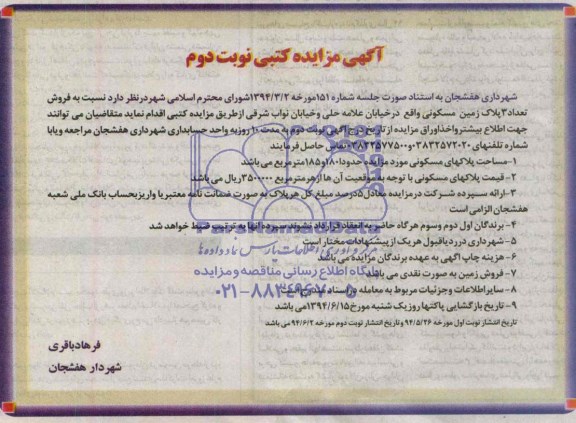 آگهی مزایده کتبی نوبت دوم
شهرداری هفشجان به استناد صورت جلسه شماره ۱۵۱مورخه ۱۳۹۴/۳/۲شورای محترم اسلامی شهردرنظر دارد نسبت به فروش
تعداد۳پلاک زمین مسکونی واقع درخیابان علامه حلی وخیابان نواب شرقی ازطریق مزایده کتبی اقدام نماید متقاضیان می توانند
جهت اطلاع بیشترواخذاوراق مزایده ازتاریخ درج آگهی نوبت دوم به مدت ۱۰روزبه واحد حسابداری شهرداری هفشجان مراجعه ویابا
شماره تلفنهای ۰۳۸۳۲۵۷۲۰۲۰و۰۳۸۳۲۵۷۷۵۰۰تماس حاصل فرمایند
۱-مساحت پلاکهای مسکونی مورد مزایده حدودا۱۸۰و۱۸۵مترمربع می باشد
۲- قیمت پلاکهای مسکونی با توجه به موقعیت آن ها ازهرمترمربع ۳۵۰۰۰۰۰ریال می باشد
۳-ارائه سپرده شرکت درمزایده معادل۵درصد مبلغ کل هرپلاک به صورت ضمانت نامه معتبریا واریزبحساب بانک ملی شعبه
هفشجان الزامی است
۴- برندگان اول دوم وسوم هرگاه حاضر به انعقاد قرارداد نشوند سپرده آنها به ترتیب ضبط خواهد شد
۵- شهرداری درردیاقبول هریک ازپیشنهادات مختار است
۶- هزینه چاپ آگهی به عهده برندگان مزایده می باشد
۷- فروش زمین به صورت نقدی می باشد
۸- سایراطلاعات وجزئیات مربوط به معامله دراسناد مندرج است
۹- تاریخ بازگشایی پاکتهاروزیک شنبه مورخ۱۳۹۴/۶/۱۵می باشد
تاریخ انتشار نوبت اول مورخه ۹۴/۵/۲۶ وتاریخ انتشار نوبت دوم مورخه ۹۴/۶/۲ می باشد
فرهادباقری
شهردار هفشجان
ParsNamadData
مرکز فرآوری اطلاعات پارس نماد داده ها
پایگاه اطلاع رسانی مناقصه و مزایده
۰۲۱-۸۸۳۴۹۶۷۰-۵